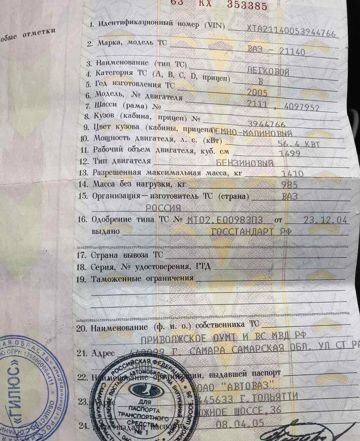 63 КХ 353385
обые отметки
1. Идентификационный номер (VIN) XTA21140053944766
2. Марка, модель ТС ВАЗ - 21140
3. Наименование (тип ТС) ЛЕГКОВОЙ
4. Категория ТС (A, B, C, D, прицеп) B
5. Год изготовления ТС 2005
6. Модель, № двигателя 2111, 4097952
7. Шасси (рама) №
8. Кузов (кабина, прицеп) № 3944766
9. Цвет кузова (кабины, прицепа) ТЕМНО-МАЛИНОВЫЙ
10. Мощность двигателя, л. с. (кВт) 56.4 КВТ
11. Рабочий объем двигателя, куб. см 1499
12. Тип двигателя БЕНЗИНОВЫЙ
13. Разрешенная максимальная масса, кг 1410
14. Масса без нагрузки, кг 985
15. Организация—изготовитель ТС (страна) ВАЗ
РОССИЯ
16. Одобрение типа ТС № МТ02.Е00983П3 от 23.12.04
выдано ГОССТАНДАРТ РФ
17. Страна вывоза ТС
18. Серия, № ГТД
19. Таможенные ограничения
20. Наименование (ф. и. о.) собственника ТС
ПРИВОЛЖСКОЕ ОУМТ И ВС МВД РФ
21. Адрес Г. САМАРА САМАРСКАЯ ОБЛ. УЛ СТ
22. выдавшей паспорт
ОАО "АВТОВАЗ"
23. 445633 Г.ТОЛЬЯТТИ
ЮЖНОЕ ШОССЕ,36
24. паспорта 08.04.05
"ГИЛЮС"
РОССИЙСКАЯ ФЕДЕРАЦИЯ
ДЛЯ
ПАСПОРТА
ТРАНСПОРТНОГО
СРЕДСТВА